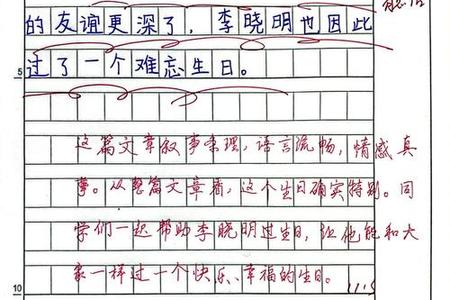 的友谊更深了，李晓明也因此
过了一个难忘生日。
5
这篇文章叙事条理，语言流畅，情感真
挚。从整篇文章看，这个生日确实特别。同
学们一起帮助李晓明过生日，让他能和大
家一样过一个快乐、幸福的生日。
10
11.5